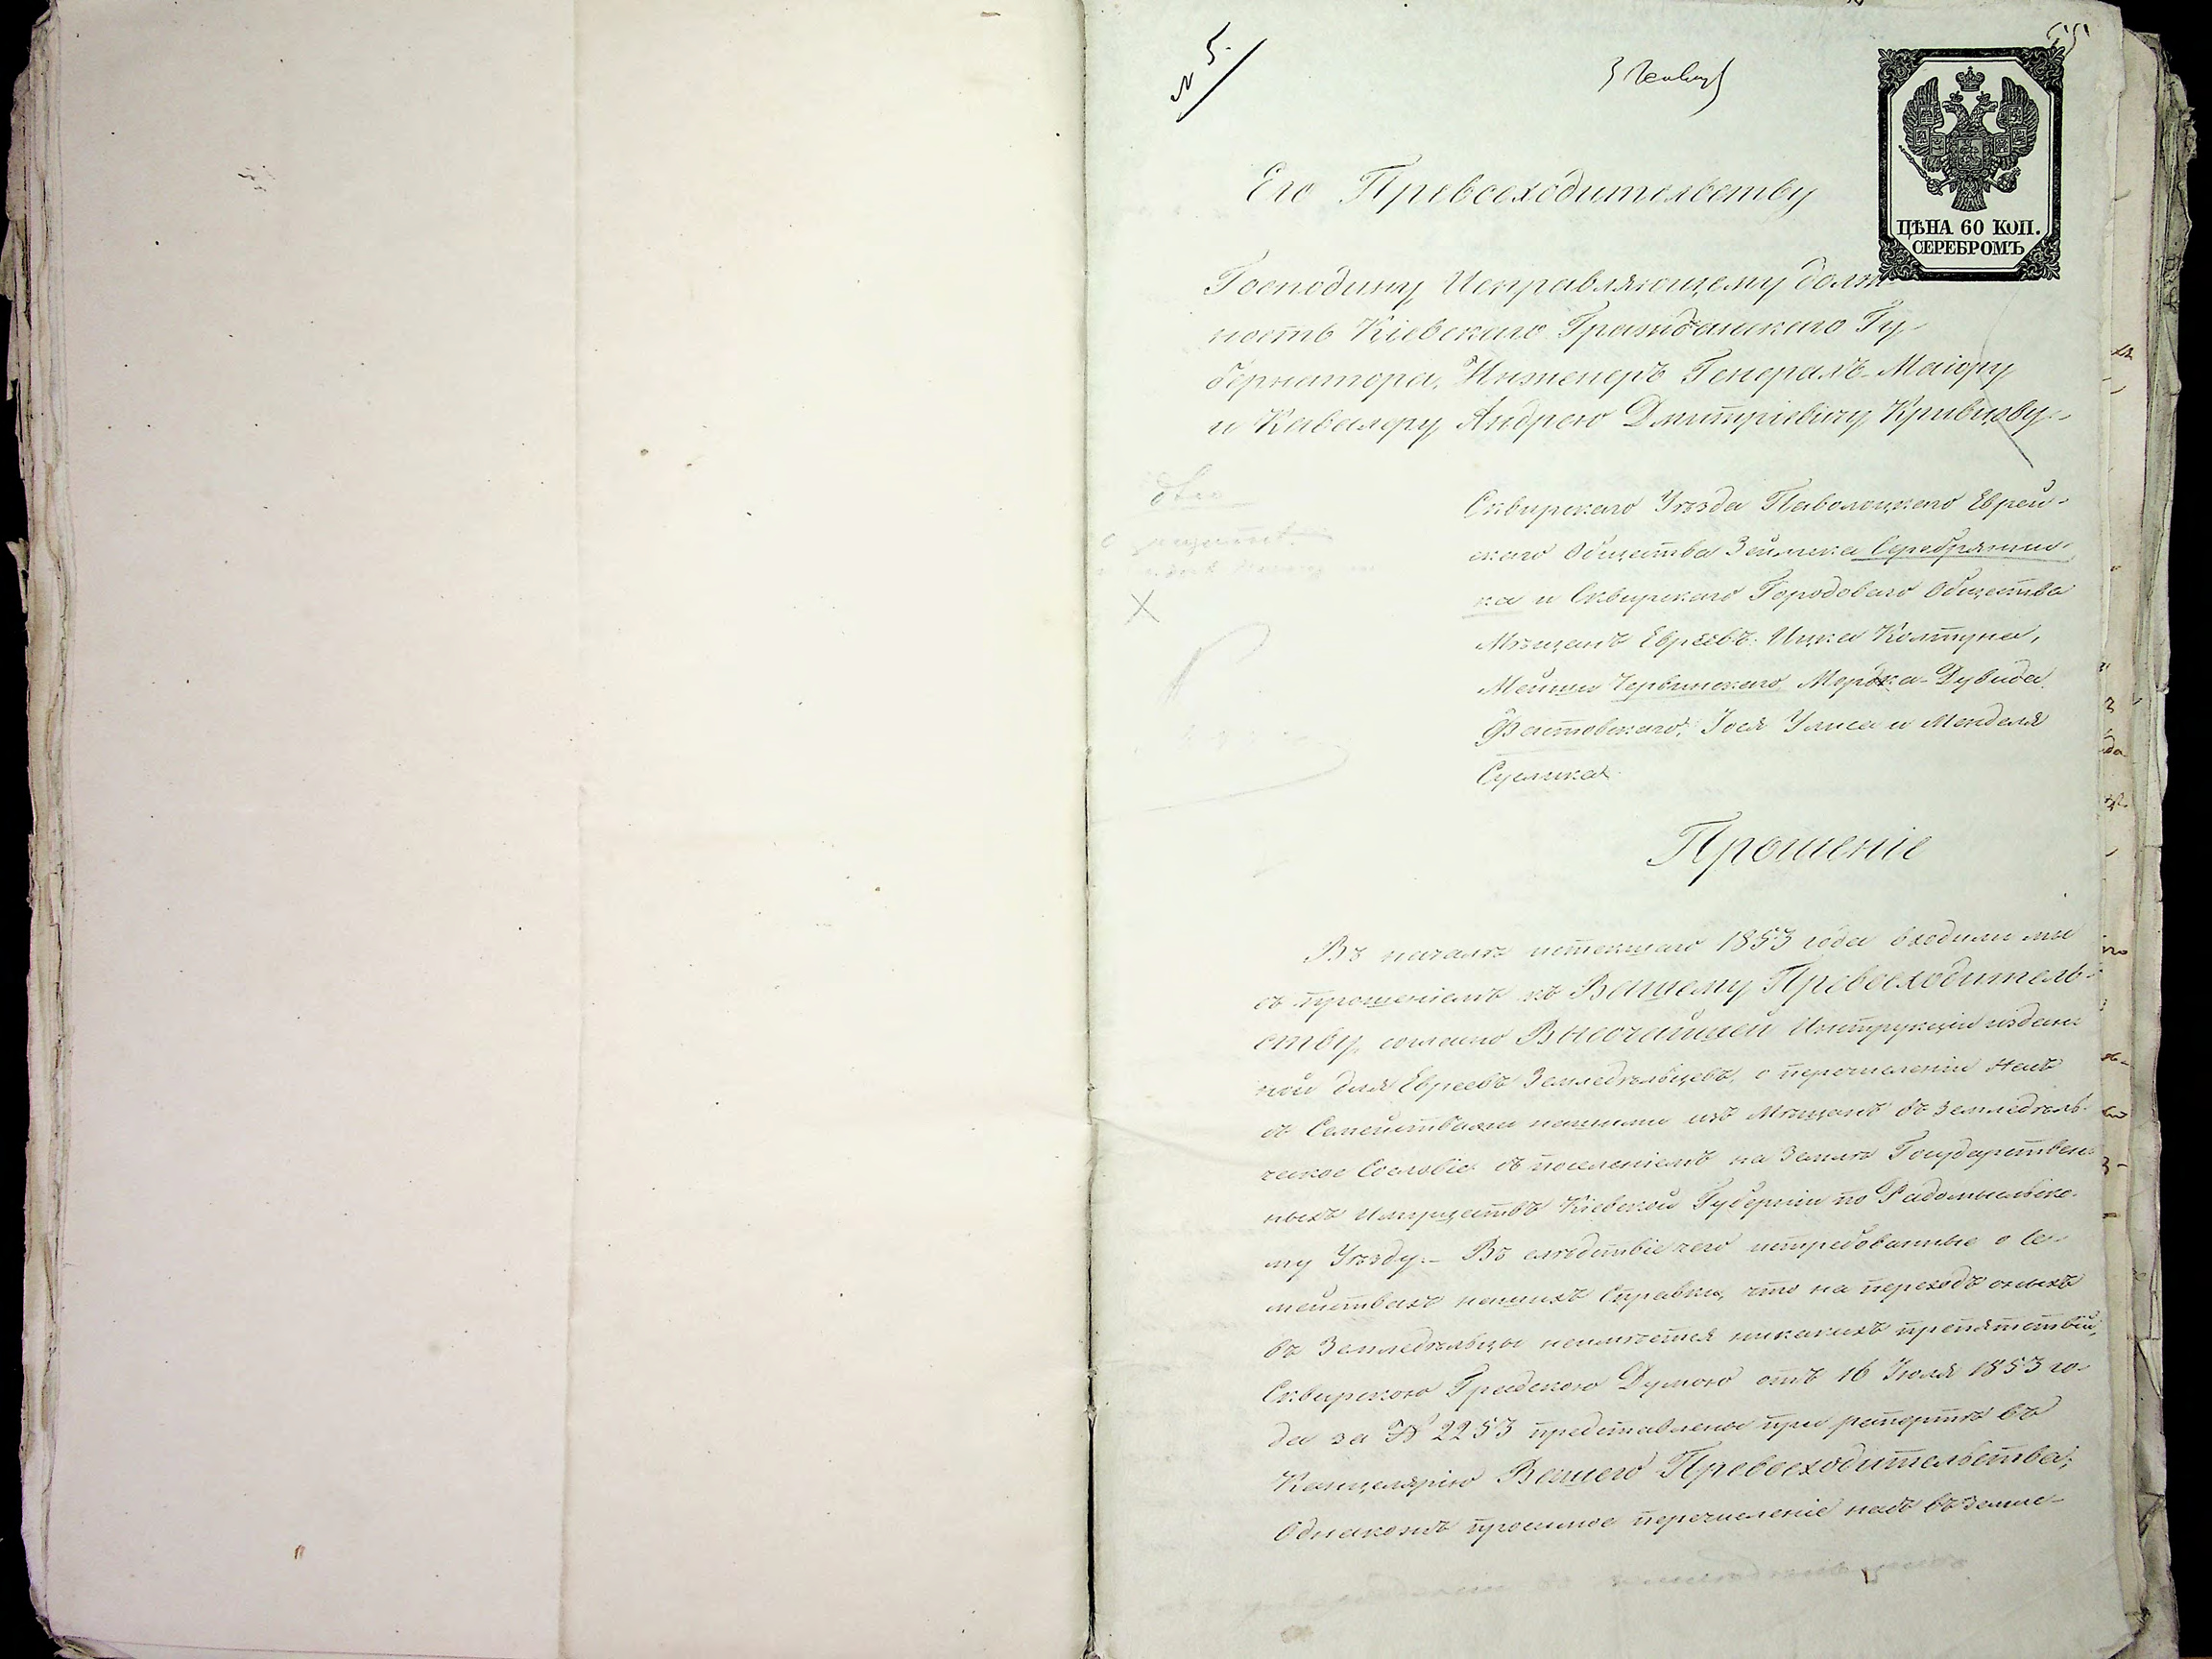 № 5.
55
3 Генвар
ЦѢНА 60 КОП.
СЕРЕБРОМЪ
Его Превосходительству
Господину Исправляющему долж-
ность Кіевскаго Гражданскаго Гу-
бернатора, Инженеръ Генералъ-Маіору
и Кавалеру Андрею Дмитріевичу Кривцову
Сквирскаго Уѣзда Паволоцкаго Еврей-
скаго Общества Зейлика Серебрянни-
ка и Сквирскаго Городоваго Общества
Мѣщанъ Евреевъ: Ицка Колтуна,
Мейши Червинскаго, Мордка-Дувида
Фастовскаго, Іося Улиса и Менделя
Суслика
Прошеніе
Въ началѣ истекшаго 1853 года входили мы
съ прошеніемъ къ Вашему Превосходитель-
ству, согласно Высочайшей Инструкціи издан-
ной для Евреевъ Земледѣльцевъ, о перечисленіи насъ
съ Семействами нашими изъ Мѣщанъ въ земледѣль-
ческое Сословіе съ поселеніемъ на Землѣ Государствен-
ныхъ Имуществъ Кіевской Губерніи по Радомысльско-
му Уѣзду.- Въ слѣдствіе чего истребованные о Се-
мействахъ нашихъ Справки, что на переходъ оныхъ
въ Земледѣльцы неимѣется никакихъ препятствій,
Сквирскою Градскою Думою отъ 16 Іюля 1853 го-
да за № 2253 представлены при рапортѣ въ
Канцелярію Вашего Превосходительства;
Однакожъ просимое перечисленіе насъ въ земле-